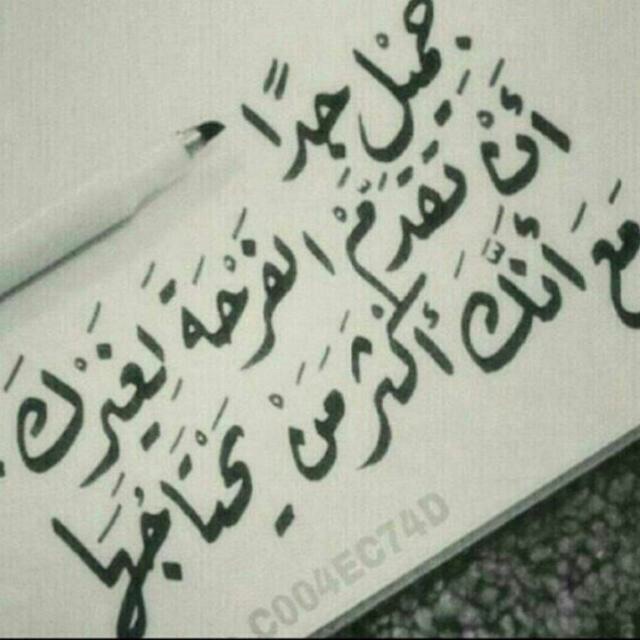 جميل جدًا
أن تقدم الفرحة لغيرك
مع أنك أكثر من يحتاجها
C004EC74D